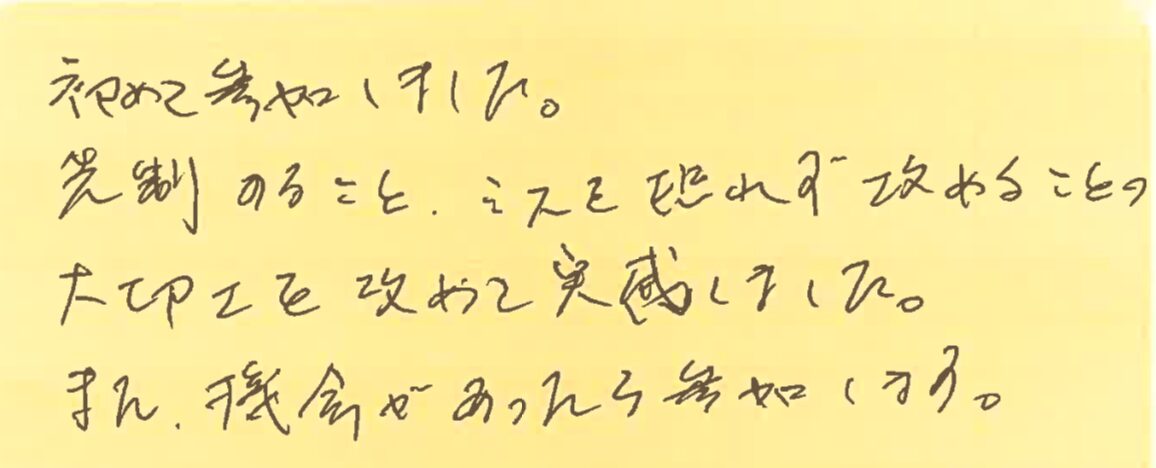 初めて参加しました。
先制すること、ミスを恐れず攻めることの
大切さを改めて実感しました。
また、機会があったら参加します。